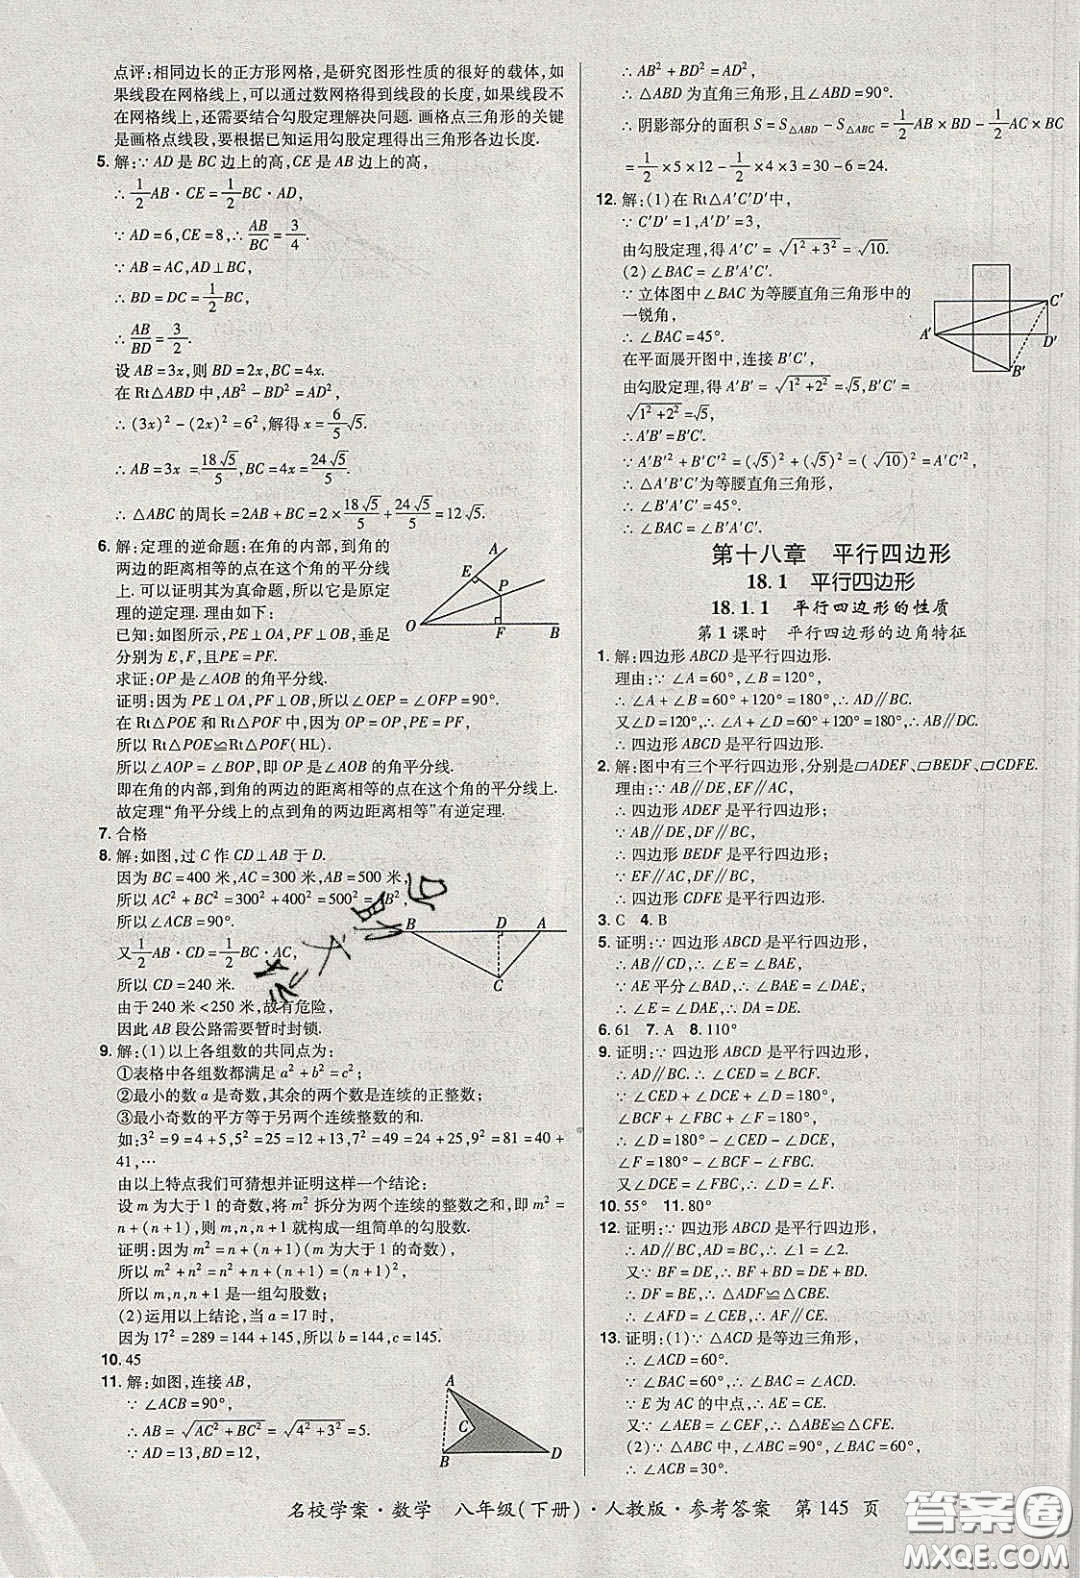 点评:相同边长的正方形网格,是研究图形性质的很好的载体,如
果线段在网格线上,可以通过数网格得到线段的长度,如果线段不
在网格线上,还需要结合勾股定理解决问题. 画格点三角形的关键
是画格点线段,要根据已知运用勾股定理得出三角形各边长度.
5. 解:∵AD是BC边上的高,CE是AB边上的高,
∴1/2AB·CE=1/2BC·AD,
∵AD=6,CE=8,∴AB/BC=3/4.
∵AB=AC,AD⊥BC,
∴BD=DC=1/2BC,
∴AB/BD=3/2.
设AB=3x,则BD=2x,BC=4x.
在Rt△ABD中,AB²-BD²=AD²,
∴(3x)²-(2x)²=6²,解得x=6/5√5.
∴AB=3x=18√5/5,BC=4x=24√5/5.
∴△ABC的周长=2AB+BC=2×18√5/5+24√5/5=12√5.
6. 解:定理的逆命题:在角的内部,到角的
两边的距离相等的点在这个角的平分线
上. 可以证明其为真命题,即其是原定理
的逆定理. 理由如下:
已知:如图所示,PE⊥OA,PF⊥OB,垂足
分别为E,F,且PE=PF.
求证:OP是∠AOB的角平分线.
证明:因为PE⊥OA,PF⊥OB,所以∠OEP=∠OFP=90°.
在Rt△POE和Rt△POF中,因为OP=OP,PE=PF,
所以Rt△POE≌Rt△POF(HL).
所以∠AOP=∠BOP,即OP是∠AOB的角平分线.
即在角的内部,到角的两边的距离相等的点在这个角的平分线上.
故定理“角平分线上的点到角的两边距离相等”有逆定理.
A
E
P
O
F
B
7. 合格
8. 解:如图,过C作CD⊥AB于D.
因为BC=400米,AC=300米,AB=500米,
所以AC²+BC²=300²+400²=500²=AB²,
所以∠ACB=90°.
又1/2AB·CD=1/2BC·AC,
所以CD=240米.
由于240米<250米,故有危险,
因此AB段公路需要暂时封锁.
B
D
A
C
9. 解:(1)以上各组数的共同点为:
①表格中各组数都满足a²+b²=c²;
②最小的数a是奇数,其余的两个数是连续的正整数;
③最小奇数的平方等于另两个连续整数的和.
如:3²=9=4+5,5²=25=12+13,7²=49=24+25,9²=81=40+
41,⋯
由以上特点我们可猜想并证明这样一个结论:
设m为大于1的奇数,将m²拆分为两个连续的整数之和,即m²=
n+(n+1),则m,n,n+1就构成一组简单的勾股数.
证明:因为m²=n+(n+1)(m为大于1的奇数),
所以m²+n²=n²+2n+1=(n+1)²,
所以m,n,n+1是一组勾股数;
(2)运用以上结论,当a=17时,
因为17²=289=144+145,所以b=144,c=145.
10. 45
11. 解:如图,连接AB,
∵∠ACB=90°,
∴AB=√(AC²+BC²)=√(4²+3²)=5.
∵AD=13,BD=12,
A
C
B
D
∴AB²+BD²=AD².
∴△ABD为直角三角形,且∠ABD=90°.
∴阴影部分的面积S=S△ABD-S△ABC=1/2AB×BD-1/2AC×BC
=1/2×5×12-1/2×4×3=30-6=24.
12. 解:(1)在Rt△A′C′D′中,
∵C′D′=1,A′D′=3,
由勾股定理,得A′C′=√(1²+3²)=√10.
(2)∠BAC=∠B′A′C′.
∵立体图中∠BAC为等腰直角三角形中的
一锐角,
∴∠BAC=45°.
在平面展开图中,连接B′C′,
由勾股定理,得A′B′=√(1²+2²)=√5,B′C′=
√(1²+2²)=√5,
∴A′B′=B′C′.
∵A′B′²+B′C′²=(√5)²+(√5)²=(√10)²=A′C′²,
∴△A′B′C′为等腰直角三角形,
∴∠B′A′C′=45°,
∴∠BAC=∠B′A′C′.
C′
A′
D′
B′
第十八章 平行四边形
18.1 平行四边形
18.1.1 平行四边形的性质
第1课时 平行四边形的边角特征
1. 解:四边形ABCD是平行四边形.
理由:∵∠A=60°,∠B=120°,
∴∠A+∠B=60°+120°=180°,∴AD∥BC.
又∠D=120°,∴∠A+∠D=60°+120°=180°,∴AB∥DC.
∴四边形ABCD是平行四边形.
2. 解:图中有三个平行四边形,分别是▱ADEF、▱BEDF、▱CDFE.
理由:∵AB∥DE,EF∥AC,
∴四边形ADEF是平行四边形;
∵AB∥DE,DF∥BC,
∴四边形BEDF是平行四边形;
∵EF∥AC,DF∥BC,
∴四边形CDFE是平行四边形.
3. C 4. B
5. 证明:∵四边形ABCD是平行四边形,
∴AB∥CD,∴∠E=∠BAE,
∵AE平分∠BAD,∴∠BAE=∠DAE,
∴∠E=∠DAE,∴DA=DE.
6. 61 7. A 8. 110°
9. 证明:∵四边形ABCD是平行四边形,
∴AD∥BC. ∴∠CED=∠BCF.
∵∠CED+∠DCE+∠D=180°,
∠BCF+∠FBC+∠F=180°,
∴∠D=180°-∠CED-∠DCE,
∠F=180°-∠BCF-∠FBC.
又∠DCE=∠FBC,∴∠D=∠F.
10. 55° 11. 80°
12. 证明:∵四边形ABCD是平行四边形,
∴AD∥BC,AD=BC,∴∠1=∠2.
又∵BF=DE,∴BF+BD=DE+BD,
∴DF=BE,∴△ADF≌△CBE.
∴∠AFD=∠CEB,∴AF∥CE.
13. 证明:(1)∵△ACD是等边三角形,
∴∠ACD=60°.
∴∠ACD=∠BAC=60°.
∵E为AC的中点,∴AE=CE.
又∵∠AEB=∠CEF,∴△ABE≌△CFE.
(2)∵△ABC中,∠ABC=90°,∠BAC=60°,
∴∠ACB=30°.
名校学案·数学 八年级(下册)·人教版·参考答案 第145页
答案圈
MXQE.COM